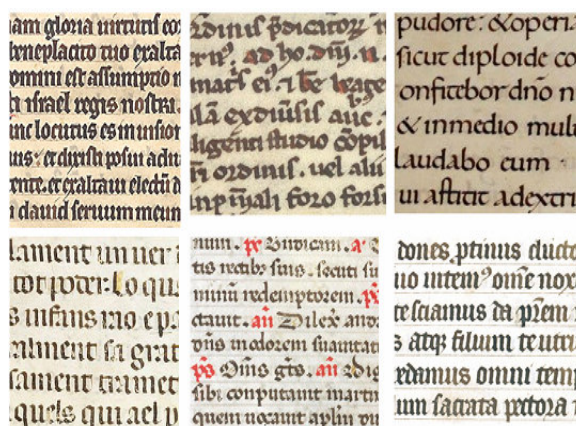 iam gloria uirtutis eor
beneplacito tuo exalta
omini est assumptio n
israel regis nostri.
unc locutus es in uision
uis: et dixisti posui adiu
tente. et exaltaui electū d
dauid seruum meum
rdinis p̄dicatoꝝ
ad ho. dm̄. n.
ei⁹. ⁊ bē
lā ex diuisis auc̄.
ligenti studio ꝯpil
ordinis. uel alii
foro forsi
pudore: & operi
sicut diploide co
onfitebor dn̄o n
& inmedio mul
laudabo eum
ui astitit adextri
lament un uer
tot poder. Lo qu
s infans no e p
ralment sa grat
sament tramet
quels qui ael p
num. ps Iudicam. a
tis rectib; suis. secuti su
minū redemptorem. ps
ctauit. an̄ Dilex
oris in odorem suauitati
ps Om̄s gts. an̄ Dig
sibi conputauit martiri
quem uocauit aplm̄
dones, ꝓtinus ducto
uo intem⁹ om̄e nox
te sciamus da p̄rem
s atqꝫ filium te utri
redamus omni temp
um sacrata pectora